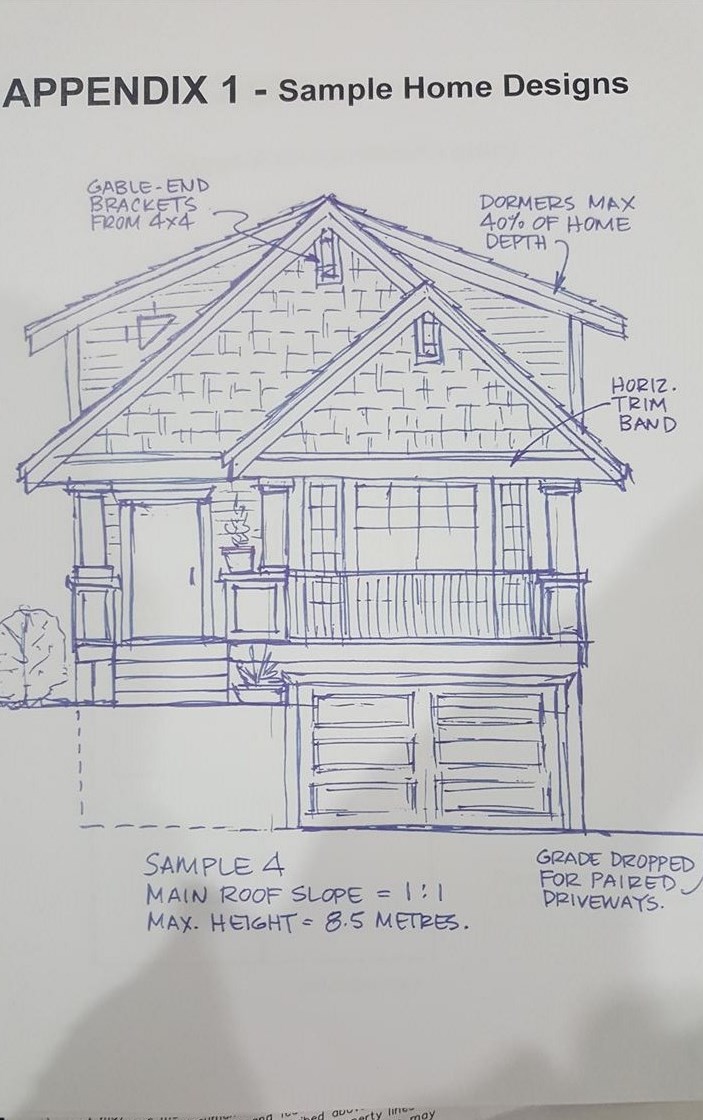 APPENDIX 1 - Sample Home Designs
GABLE-END
BRACKETS
FROM 4x4
DORMERS MAX
40% OF HOME
DEPTH
HORIZ.
TRIM
BAND
SAMPLE 4
MAIN ROOF SLOPE = 1:1
MAX. HEIGHT = 8.5 METRES.
GRADE DROPPED
FOR PAIRED
DRIVEWAYS.
may